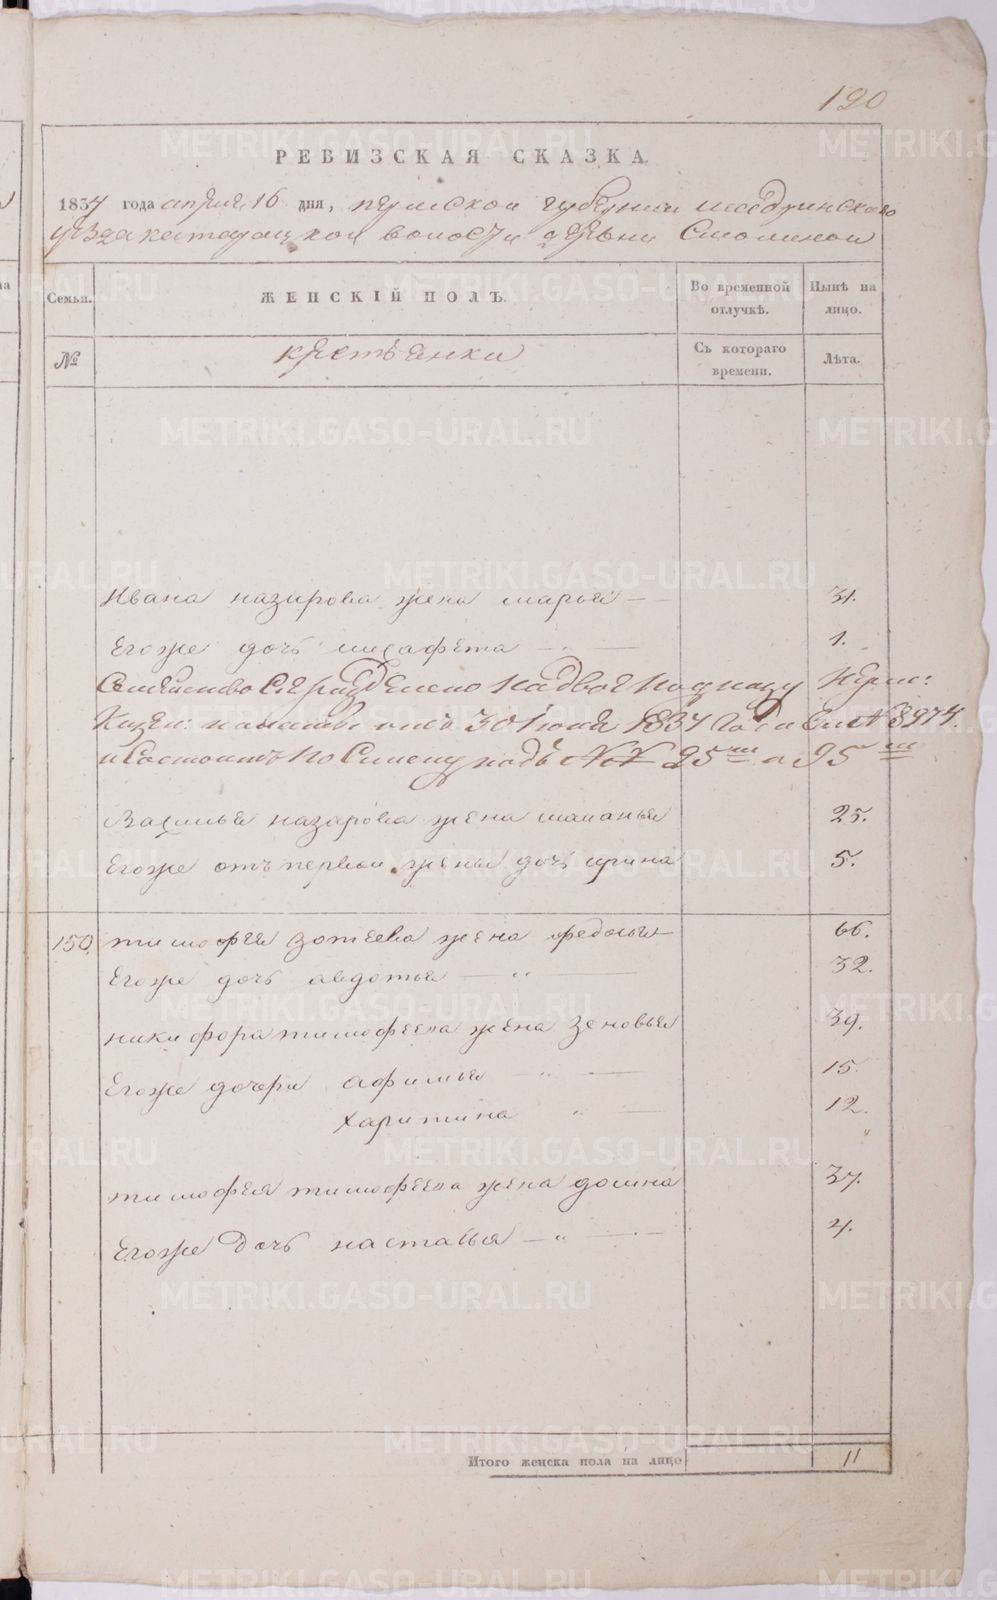 120
РЕВИЗСКАЯ СКАЗКА.
1834 года апреля 16 дня, пермской губернии шадринского
уезда волости деревни Смолиной
Семьи. ЖЕНСКІЙ ПОЛЪ. Во временной отлучкѣ. Нынѣ на лицо.
№ крестьянки Съ котораго времени. Лѣта.
Ивана назарова жена марья 31.
Егоже дочь 1.
Семейство Сие разделено На двое По указу Перм:
Казен: палаты отъ 30 Июня 1837 Года За № 3974.
и Состоитъ По Сему подъ №№ 25 и 95
Василья назарова жена маланья 25.
Егоже отъ первой жены дочь ирина 5.
150. тимофея зотеева жена федосья 66.
Егоже дочь авдотья 32.
никифора тимофеева жена зеновья 39.
Егоже дочери афимья 15.
харитина 12.
тимофея тимофеева жена домна 37.
Егоже Дочь настасья 4.
Итого женска пола на лицо 11
METRIKI.GASO-URAL.RU